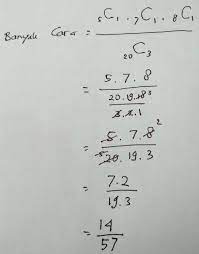 Banyak Cara = ₅C₁ . ₇C₁ . ₈C₁ / ₂₀C₃
= 5 . 7 . 8 / (20 . 19 . 18³ / 3 . 2 . 1)
= 5 . 7 . 8² / ⁵20 . 19 . 3
= 7 . 2 / 19 . 3
= 14 / 57